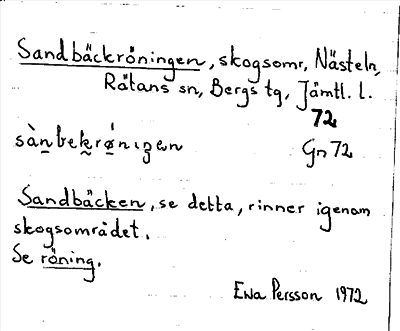 Sandbäckröningen, skogsomr, Nästeln,
Rätans sn, Bergs tg, Jämtl. l.
72
sàn̲bek̰rǿni̮ʒen Gn 72
Sandbäcken, se detta, rinner igenom
skogsområdet.
Se röning.
Ewa Persson 1972